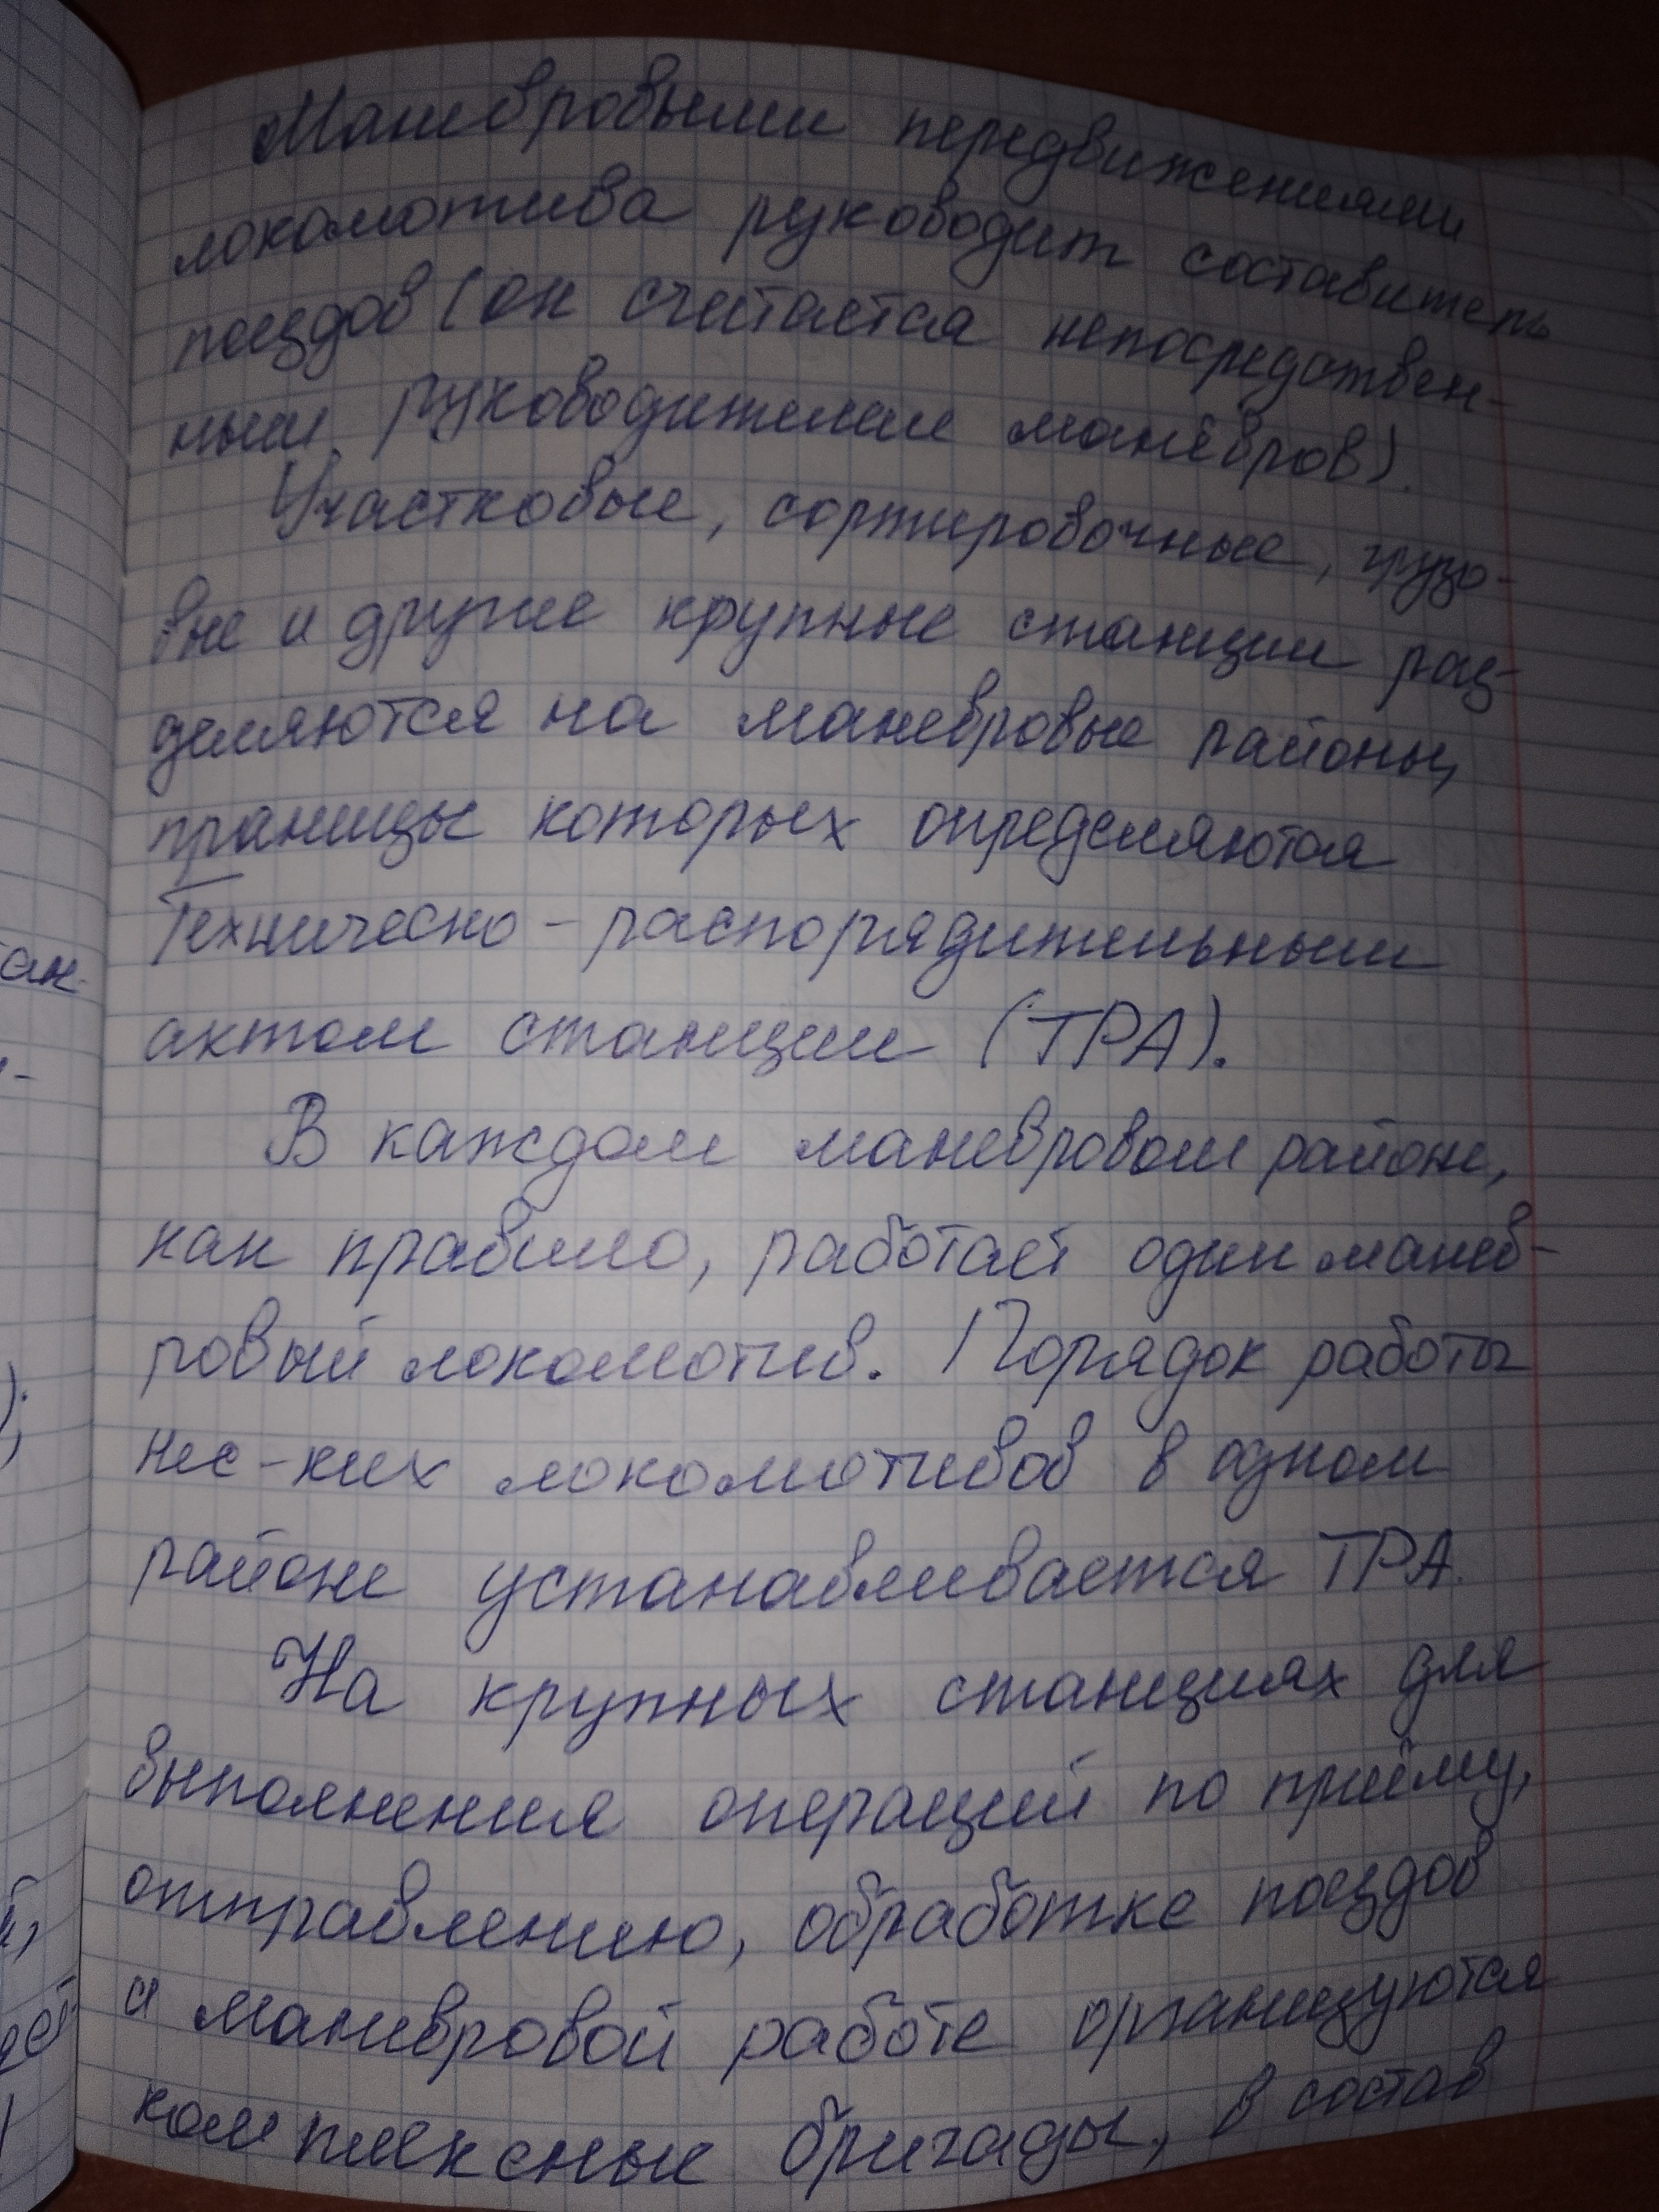 Маневровыми передвижениями
локомотива руководит составитель
поездов (он считается непосредствен-
ным руководителем манёвров).
Участковые, сортировочные, грузо-
вые и другие крупные станции раз-
деляются на маневровые районы,
границы которых определяются
Техническо-распорядительным
актом станции (ТРА).
В каждом маневровом районе,
как правило, работает один манев-
ровый локомотив. Порядок работы
нес-ких локомотивов в одном
районе устанавливается ТРА.
На крупных станциях для
выполнения операций по приёму,
отправлению, обработке поездов
и маневровой работе организуются
комплексные бригады, в состав
ан-
-
);
й,
дет